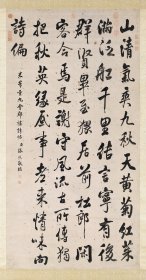 山清氣爽九秋天黃菊紅茱
滿泛船千里結言寧有後
群賢畢至猥居前杜郎閒
客今焉是謝守風流古所傳獨
把秋英緣底事老來情味向
詩偏